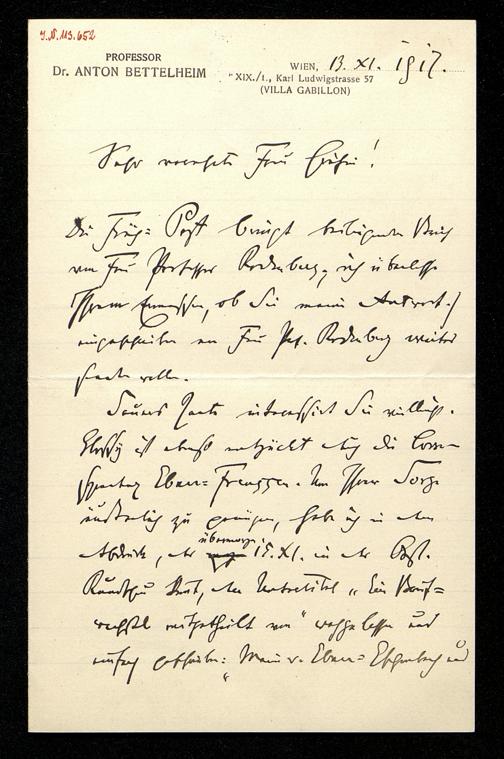 J.N. 113.652
PROFESSOR
Dr. ANTON BETTELHEIM
WIEN, 13. XI. 1917.
XIX./1., Karl Ludwigstrasse 57
(VILLA GABILLON)
Sehr verehrte Frau Gräfin!
Die Früh-Post bringt beiliegenden Brief
von Frau Professor Rodenberg; ich überlasse
Ihrem Ermessen, ob Sie meine Antwort
eingeschrieben an Frau Prof. Rodenberg weiter
senden wollen.
Sauers Karte interessirt Sie vielleicht.
Glossy ist ebenso entzückt von der Corre-
spondenz Ebner-François. Um Ihrer Sorge
zu genügen, habe ich in dem
Abdruck, der übermorgen 15. XI. in der
Rundschau den Untertitel "Ein Brief-
wechsel mitgetheilt von" weggelassen und
einfach geschrieben: "Marie v. Ebner-Eschenbach und